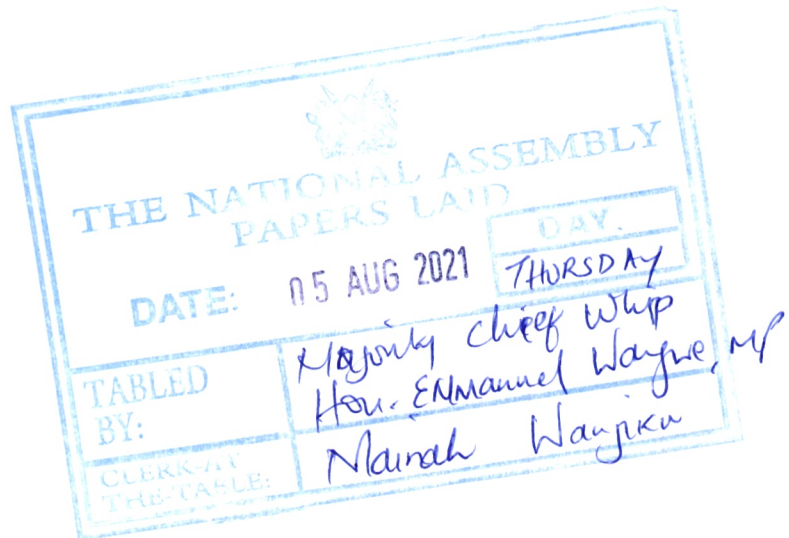 THE NATIONAL ASSEMBLY
PAPERS LAID
DATE: 05 AUG 2021
DAY.
THURSDAY
TABLED BY:
Majority Chief Whip
Hon. Emmanuel Wangwe, MP
CLERK-AT THE-TABLE:
Mainah Wanjiku